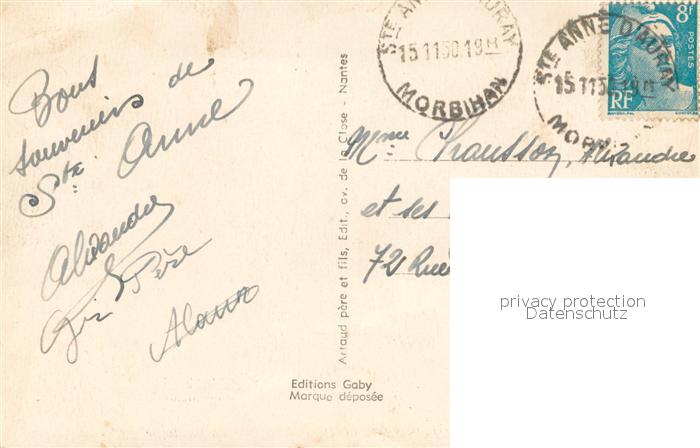 Bons
souvenirs de
Ste Anne
Alexandre
Père
STE ANNE D'AURAY
15 11 50 19H
MORBIHAN
STE ANNE D'AURAY
15 11 50 19H
MORBIHAN
8F
POSTES
RF
Mme Chausson, Alexandre
et ses
72 Rue
Artaud père et fils, Edit., av. de la Close - Nantes
Editions Gaby
Marque déposée
privacy protection
Datenschutz